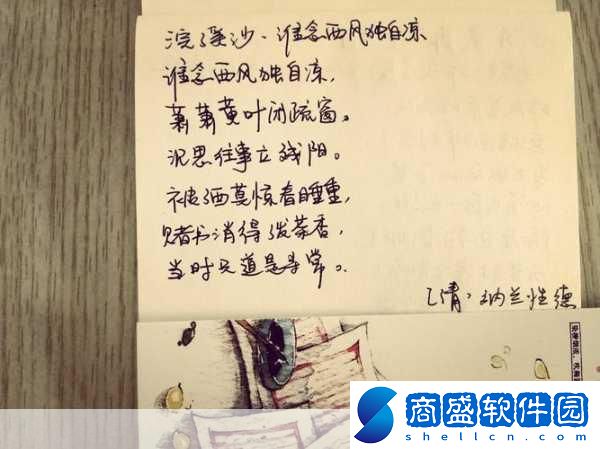 浣溪沙·谁念西风独自凉
谁念西风独自凉,
萧萧黄叶闭疏窗。
沉思往事立残阳。
被酒莫惊春睡重,
赌书消得泼茶香,
当时只道是寻常。
清·纳兰性德
商盛软件园
shellcn.com